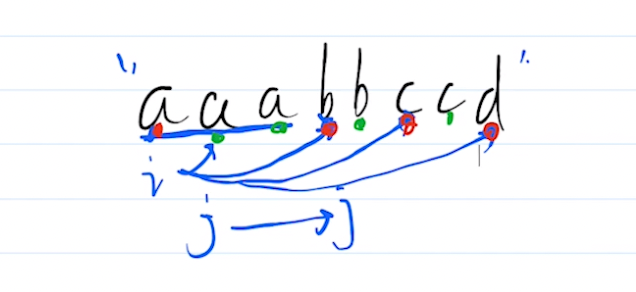 "aaabbccd"
i
j → j